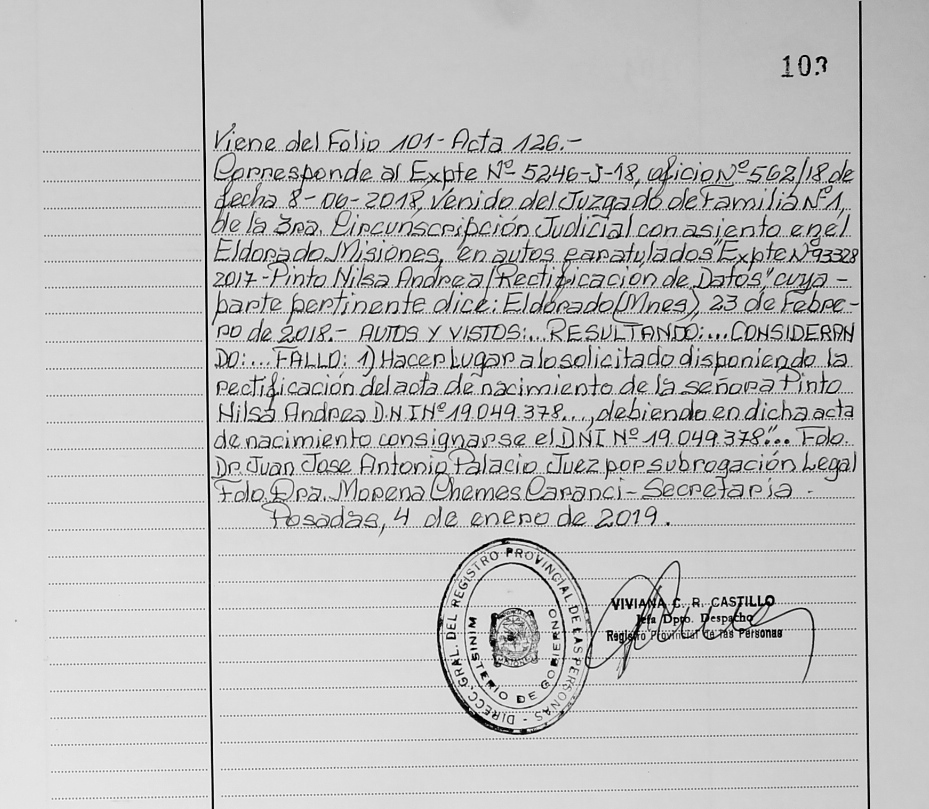 103
Viene del Folio 101- Acta 126.-
Corresponde al Expte Nº 5246-J-18, oficio Nº 562/18 de
fecha 8-06-2018, venido del Juzgado de Familia Nº1,
de la 3ra. Circunscripción Judicial con asiento en el
Eldorado, Misiones, en autos caratulados "Expte Nº 93328
2017-Pinto Nilsa Andrea/Rectificación de Datos", cuya -
parte pertinente dice: Eldorado(Mnes), 23 de Febre-
ro de 2018.- AUTOS Y VISTOS:...RESULTANDO:...CONSIDERAN
DO:... FALLO: 1) Hacer Lugar a lo solicitado disponiendo la
rectificación del acta de nacimiento de la señora Pinto
Nilsa Andrea D.N.I Nº 19.049.378..., debiendo en dicha acta
de nacimiento consignarse el DNI Nº 19.049.378"... Fdo.
Dr. Juan Jose Antonio Palacio Juez por subrogación Legal
Fdo. Dra. Morena Chemes Caranci-Secretaria.
Posadas, 4 de enero de 2019.
DIRECC. GRAL. DEL REGISTRO PROVINCIAL DE LAS PERSONAS -
MINISTERIO DE GOBIERNO
VIVIANA C. R. CASTILLO
Jefa Dpto. Despacho
Registro Provincial de las Personas